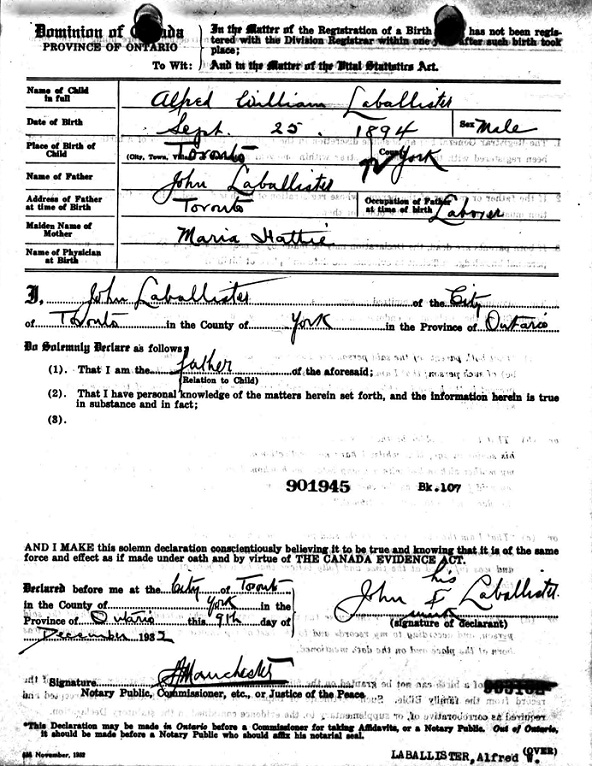 Dominion of Canada
PROVINCE OF ONTARIO
To Wit:
In the Matter of the Registration of a Birth has not been regis-
tered with the Division Registrar within one year after such birth took
place;
And in the Matter of the Vital Statistics Act.
Name of Child in full Alfred William Laballister
Date of Birth Sept. 25. 1894 Sex Male
Place of Birth of Child (City, Town, Toronto County York
Name of Father John Laballister
Address of Father at time of Birth Toronto Occupation of Father at time of birth Laborer
Maiden Name of Mother Maria Hattie
Name of Physician at Birth
I, John Laballister of the City
of Toronto in the County of York in the Province of Ontario
Do Solemnly Declare as follows:
(1). That I am the father of the aforesaid;
(Relation to Child)
(2). That I have personal knowledge of the matters herein set forth, and the information herein is true
in substance and in fact;
(3).
901945 Bk.107
AND I MAKE this solemn declaration conscientiously believing it to be true and knowing that it is of the same
force and effect as if made under oath and by virtue of THE CANADA EVIDENCE ACT.
Declared before me at the City of Toronto
in the County of York in the
Province of Ontario this 9th day of
December 1932
his
John X Laballister
mark
(signature of declarant)
Signature
Notary Public, Commissioner, etc., or Justice of the Peace
*This Declaration may be made in Ontario before a Commissioner for taking Affidavits, or a Notary Public. Out of Ontario,
it should be made before a Notary Public who should affix his notarial seal.
November, 1932
(OVER)
LABALLISTER, Alfred W.